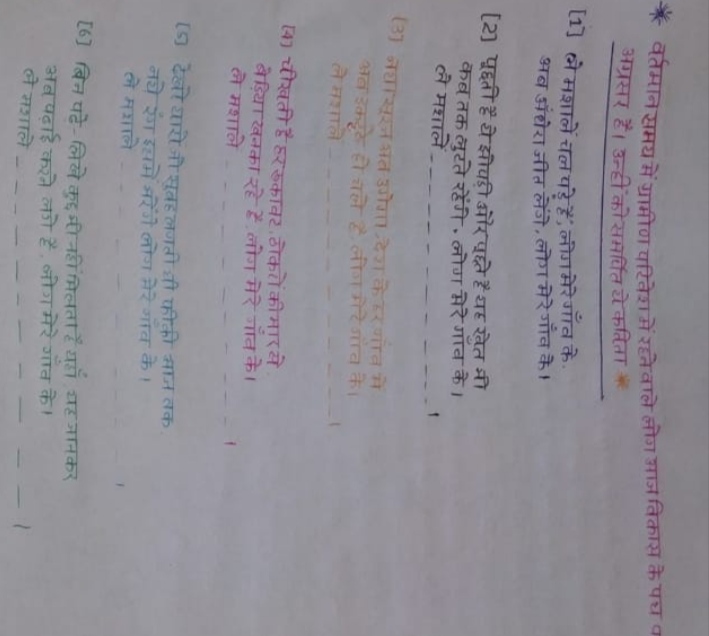 * वर्तमान समय में ग्रामीण परिवेश में रहने वाले लोग आज विकास के पथ
अग्रसर है। उन्ही को समर्पित ये कविता *
[1] ले मशालें चल पड़े हैं, लोग मेरे गाँव के.
अब अंधेरा जीत लेंगे, लोग मेरे गाँव के।
[2] पूछती है ये झोपड़ी और पूछते है यह खेत भी
कब तक लुटते रहेंगे, लोग मेरे गाँव के।
ले मशालें _ _ _ _ _ _ _ _ ।
[3] नया सूरज अब उगेगा देश के हर गांव में
अब इकट्ठे हो चले है, लोग मेरे गांव के।
ले मशाले _ _ _ _ _ _ _ _ ।
[4] चीखती है हर रूकावट, ठोकरों की मार से
बेड़िया खनका रहे है, लोग मेरे गाँव के।
ले मशाले _ _ _ _ _ _ _ _ ।
[5] देखो यारो जो सुबह लगती थी फीकी आज तक.
नये रंग उसमे भरेंगे लोग मेरे गाँव के।
ले मशाले _ _ _ _ _ _ _ _ ।
[6] बिन पढ़े-लिखे कुछ भी नहीं मिलता है यहाँ, यह जानकर
अब पढ़ाई करने लगे है, लोग मेरे गाँव के।
ले मशाले _ _ _ _ _ _ _ _ ।